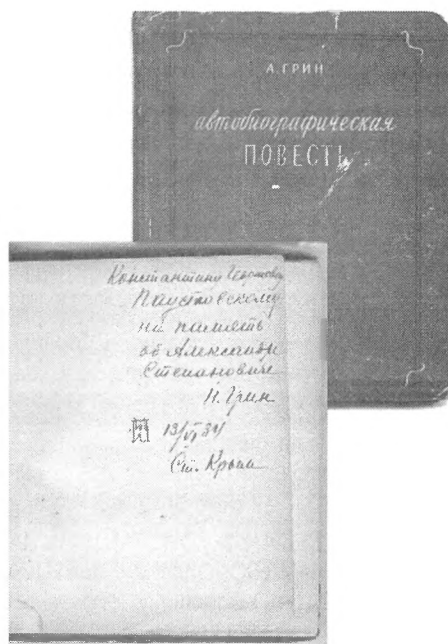 А. ГРИН
автобиографическая
ПОВЕСТЬ
Константину Георгиевичу
Паустовскому
на память
об Александре
Степановиче
Н. Грин
13/VI 34
Ст. Крым